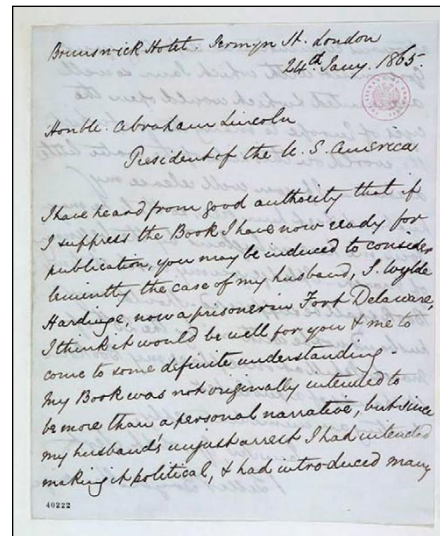 Brunswick Hotel. Jermyn St. London
24th Jany. 1865.
Honble. Abraham Lincoln
President of the U. S. America
I have heard from good authority that if
I suppress the Book I have now ready for
publication, you may be induced to consider
leniently the case of my husband, S. Wylde
Hardinge, now a prisoner in Fort Delaware,
I think it would be well for you & me to
come to some definite understanding.
My Book was not originally intended to
be more than a personal narrative, but since
my husband's unjust arrest I had intended
making it political, & had introduced many
40222